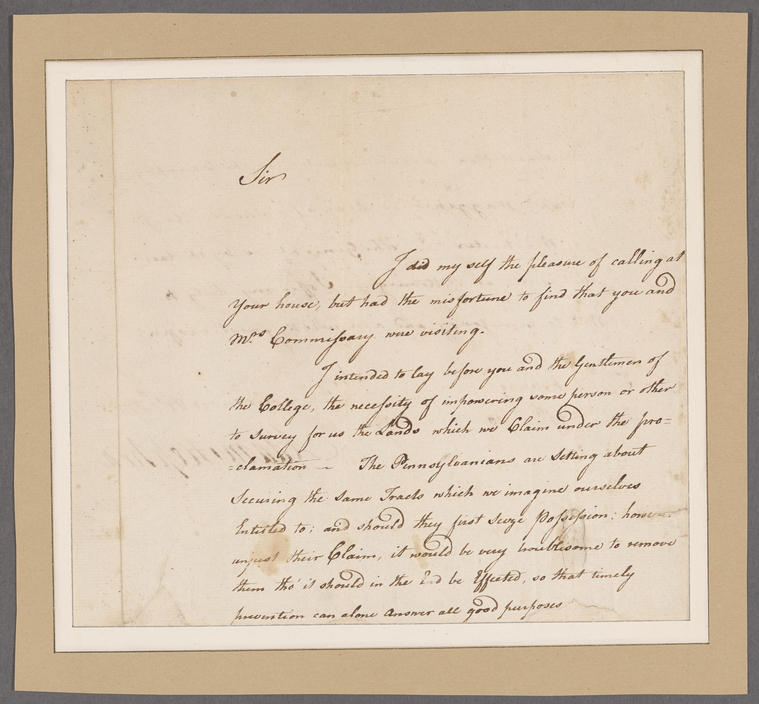 Sir
I did my self the pleasure of calling at
your house, but had the misfortune to find that you and
Mrs Commissary were visiting.
I intended to lay before you and the Gentlemen of
the College, the necessity of impowering some person or other
to survey for us the Lands which we Claim under the pro=
=clamation — The Pennsylvanians are Setting about
Securing the same Tracts which we imagine ourselves
Entitled to; and should they first Seize Possession: howe
unjust their Claim, it would be very troublesome to remove
them tho' it should in the End be Effected, so that timely
prevention can alone Answer all good purposes